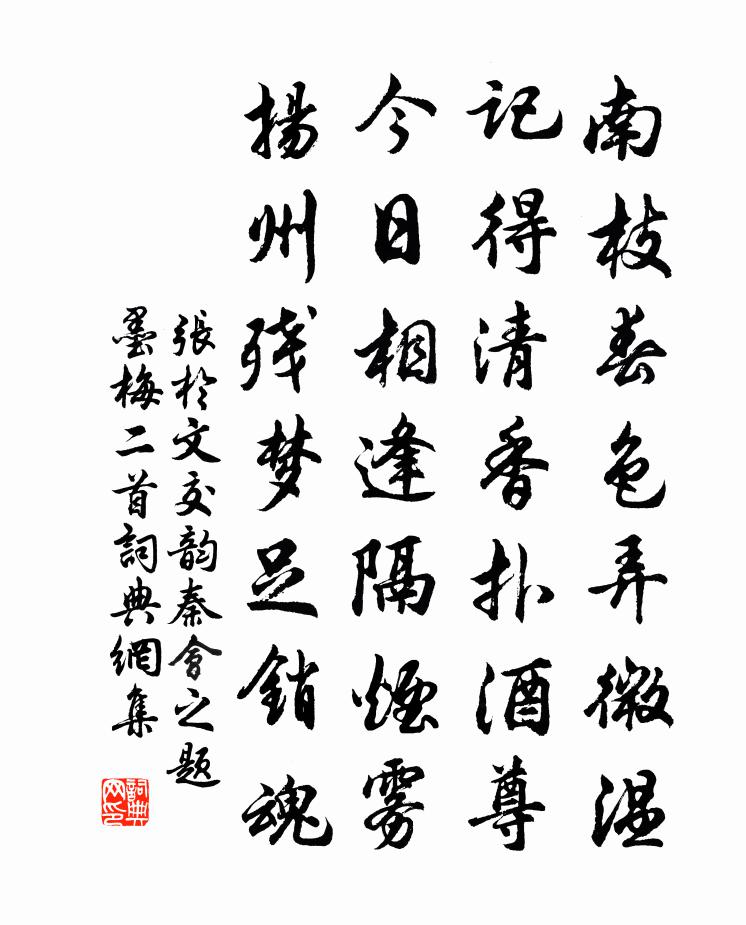 南枝春色弄微温
记得清香扑酒尊
今日相逢隔煙雾
揚州残梦足銷魂
張於文交韵秦會之題
墨梅二首詞典網集
詞典网印